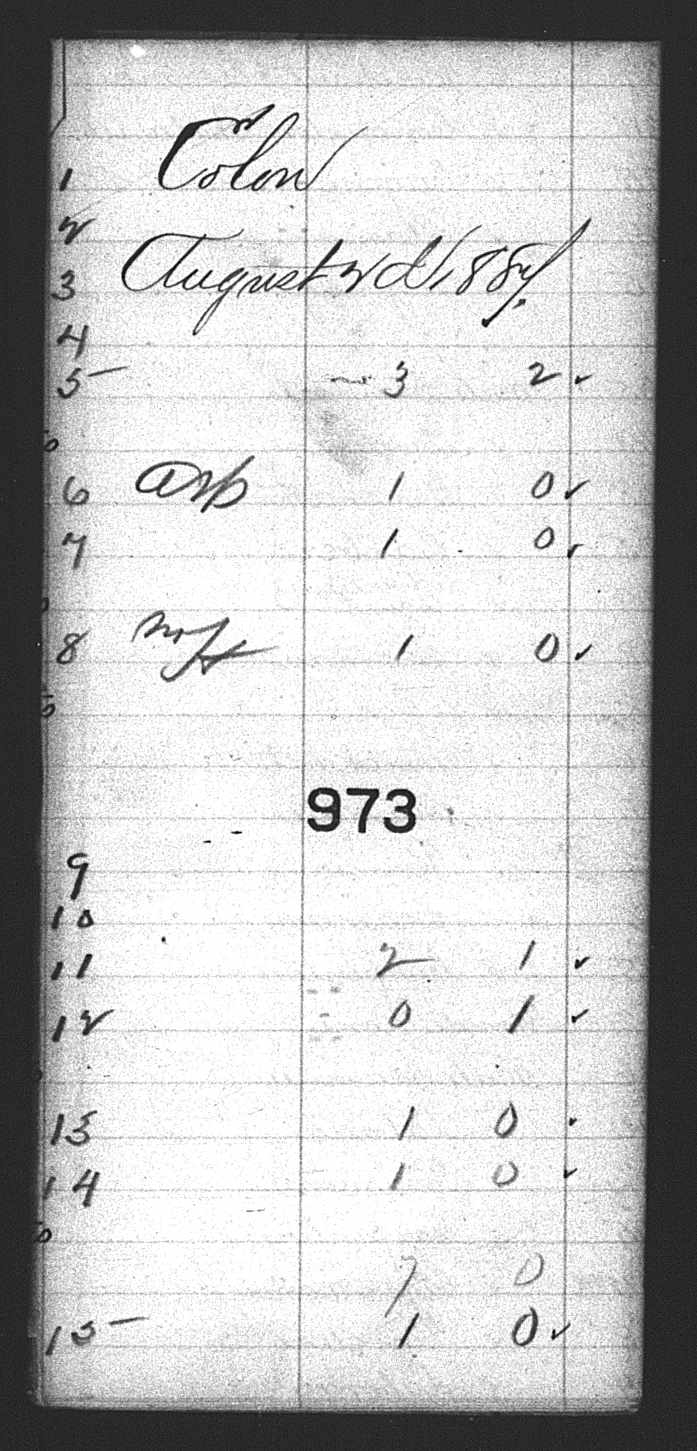 1 Colon
2
3 August 2d 1887.
4
5 3 2
6 asp 1 0
7 1 0
8 1 0
973
9
10
11 2 1
12 0 1
13 1 0
14 1 0
7 0
15 1 0